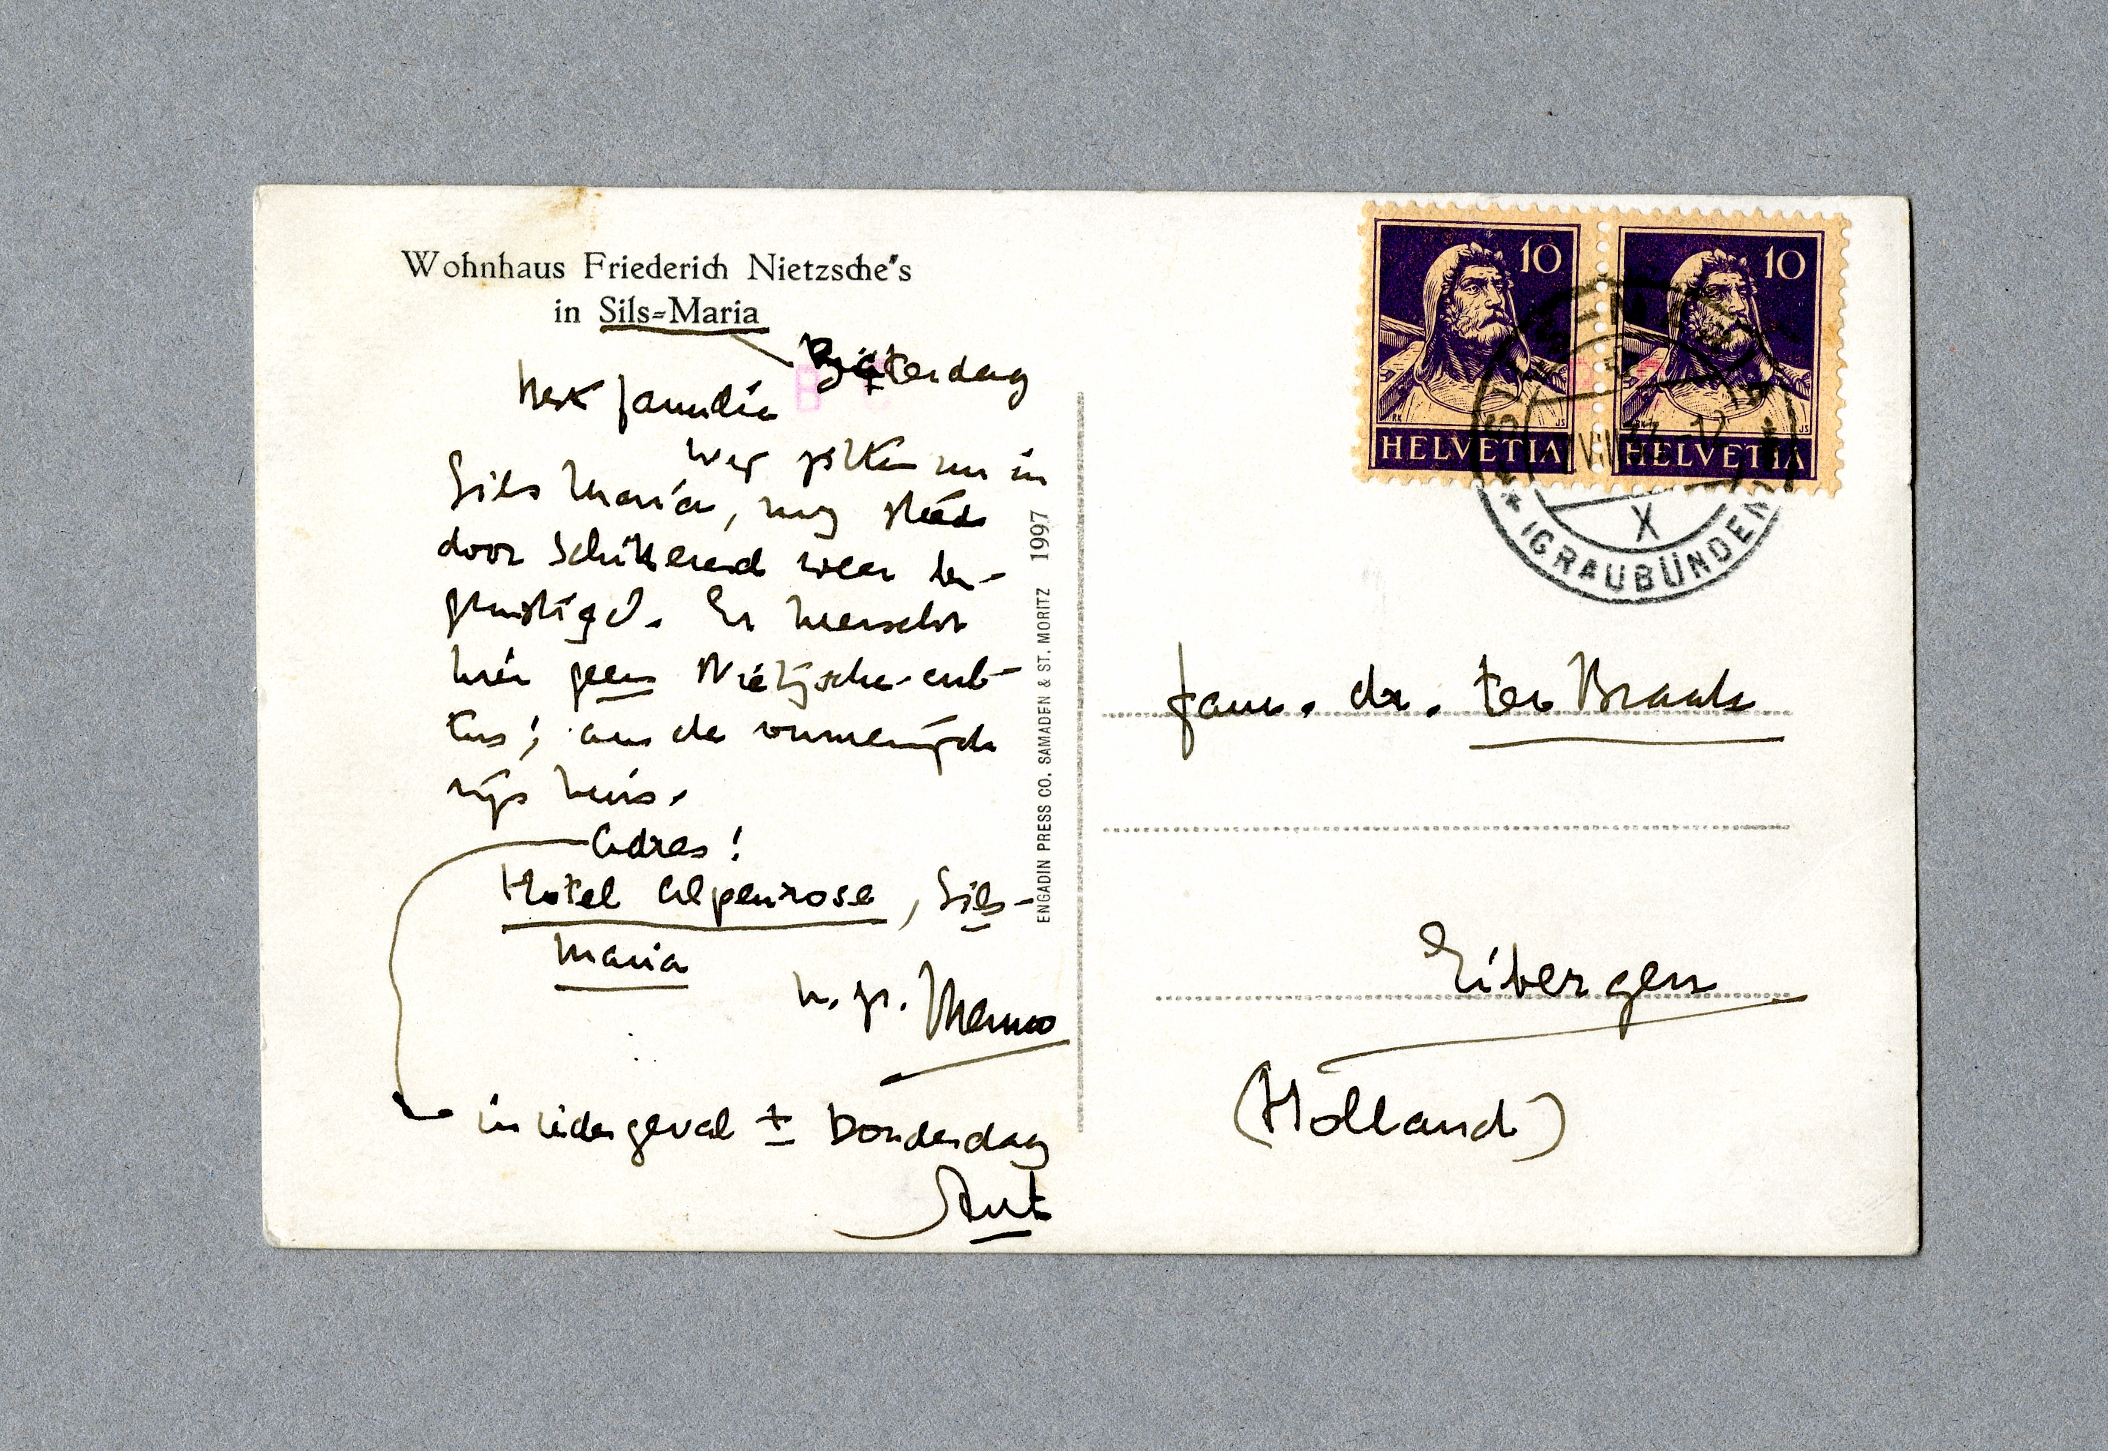 Wohnhaus Friederich Nietzsche's
in Sils-Maria
Zaterdag
familie
Wij zitten nu in
Sils Maria, nog steeds
door schitterend weer be-
gunstigd. Er heerscht
hier geen Nietzsche-cul-
tus; aan de ommezijde
zijn huis.
Adres!
Hotel Alpenrose, Sils-
Maria
h. gr. Menno
in ieder geval ± Donderdag
Ant
ENGADIN PRESS CO. SAMADEN & ST. MORITZ 1997
10
HELVETIA
10
HELVETIA
X
(GRAUBÜNDEN)
Fam. dr. ter Braak
Eibergen
(Holland)